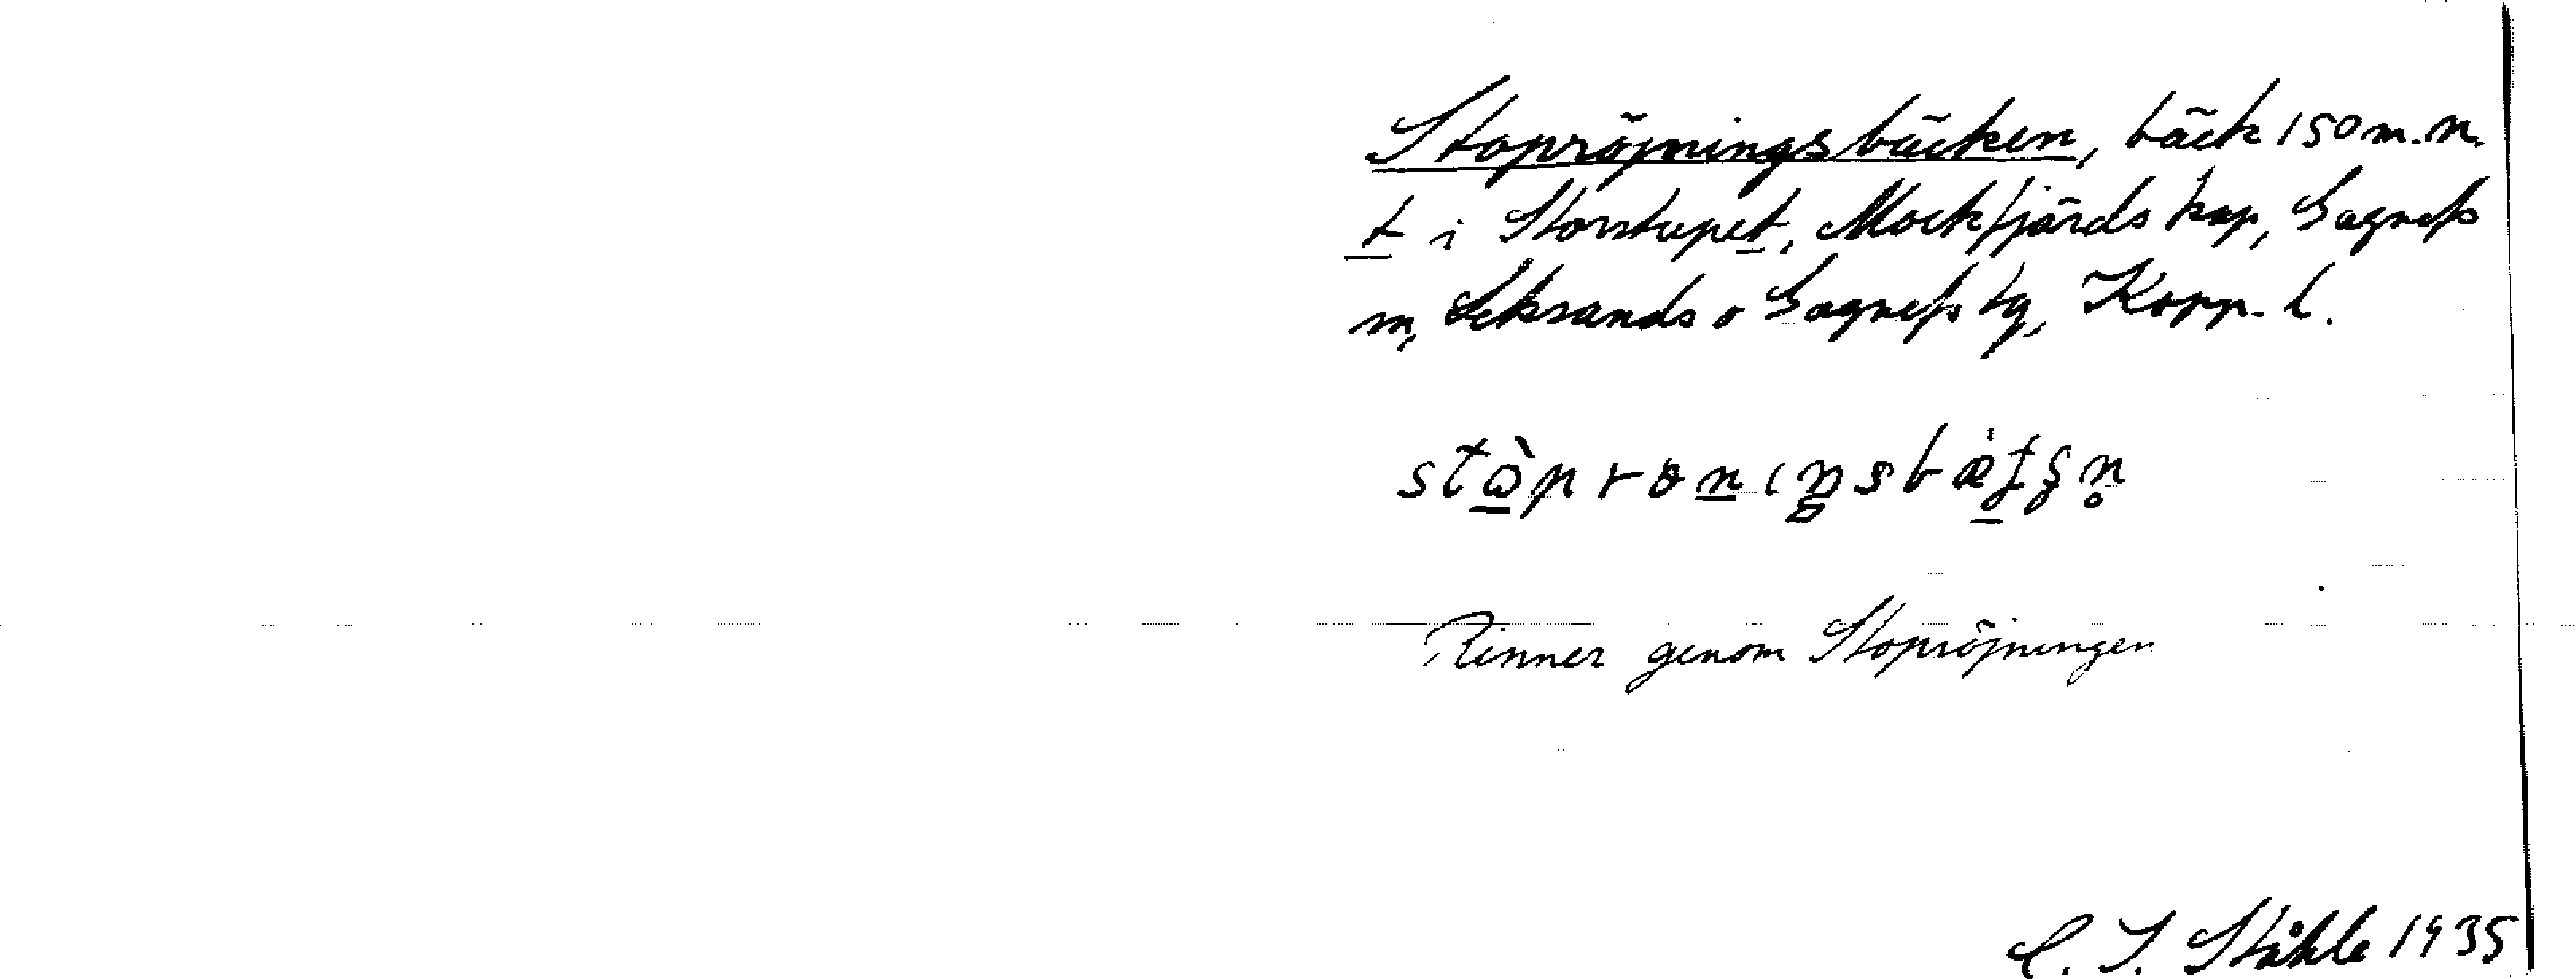 Stopröjningsbäcken, bäck 150 m. n.
t i Storstupet, Mockfjärds kap, Gagnefs
m, Leksands o Gagnefs tg, Kopp. l.
Rinner genom Stopröjningen
C. I. Ståhle 1935